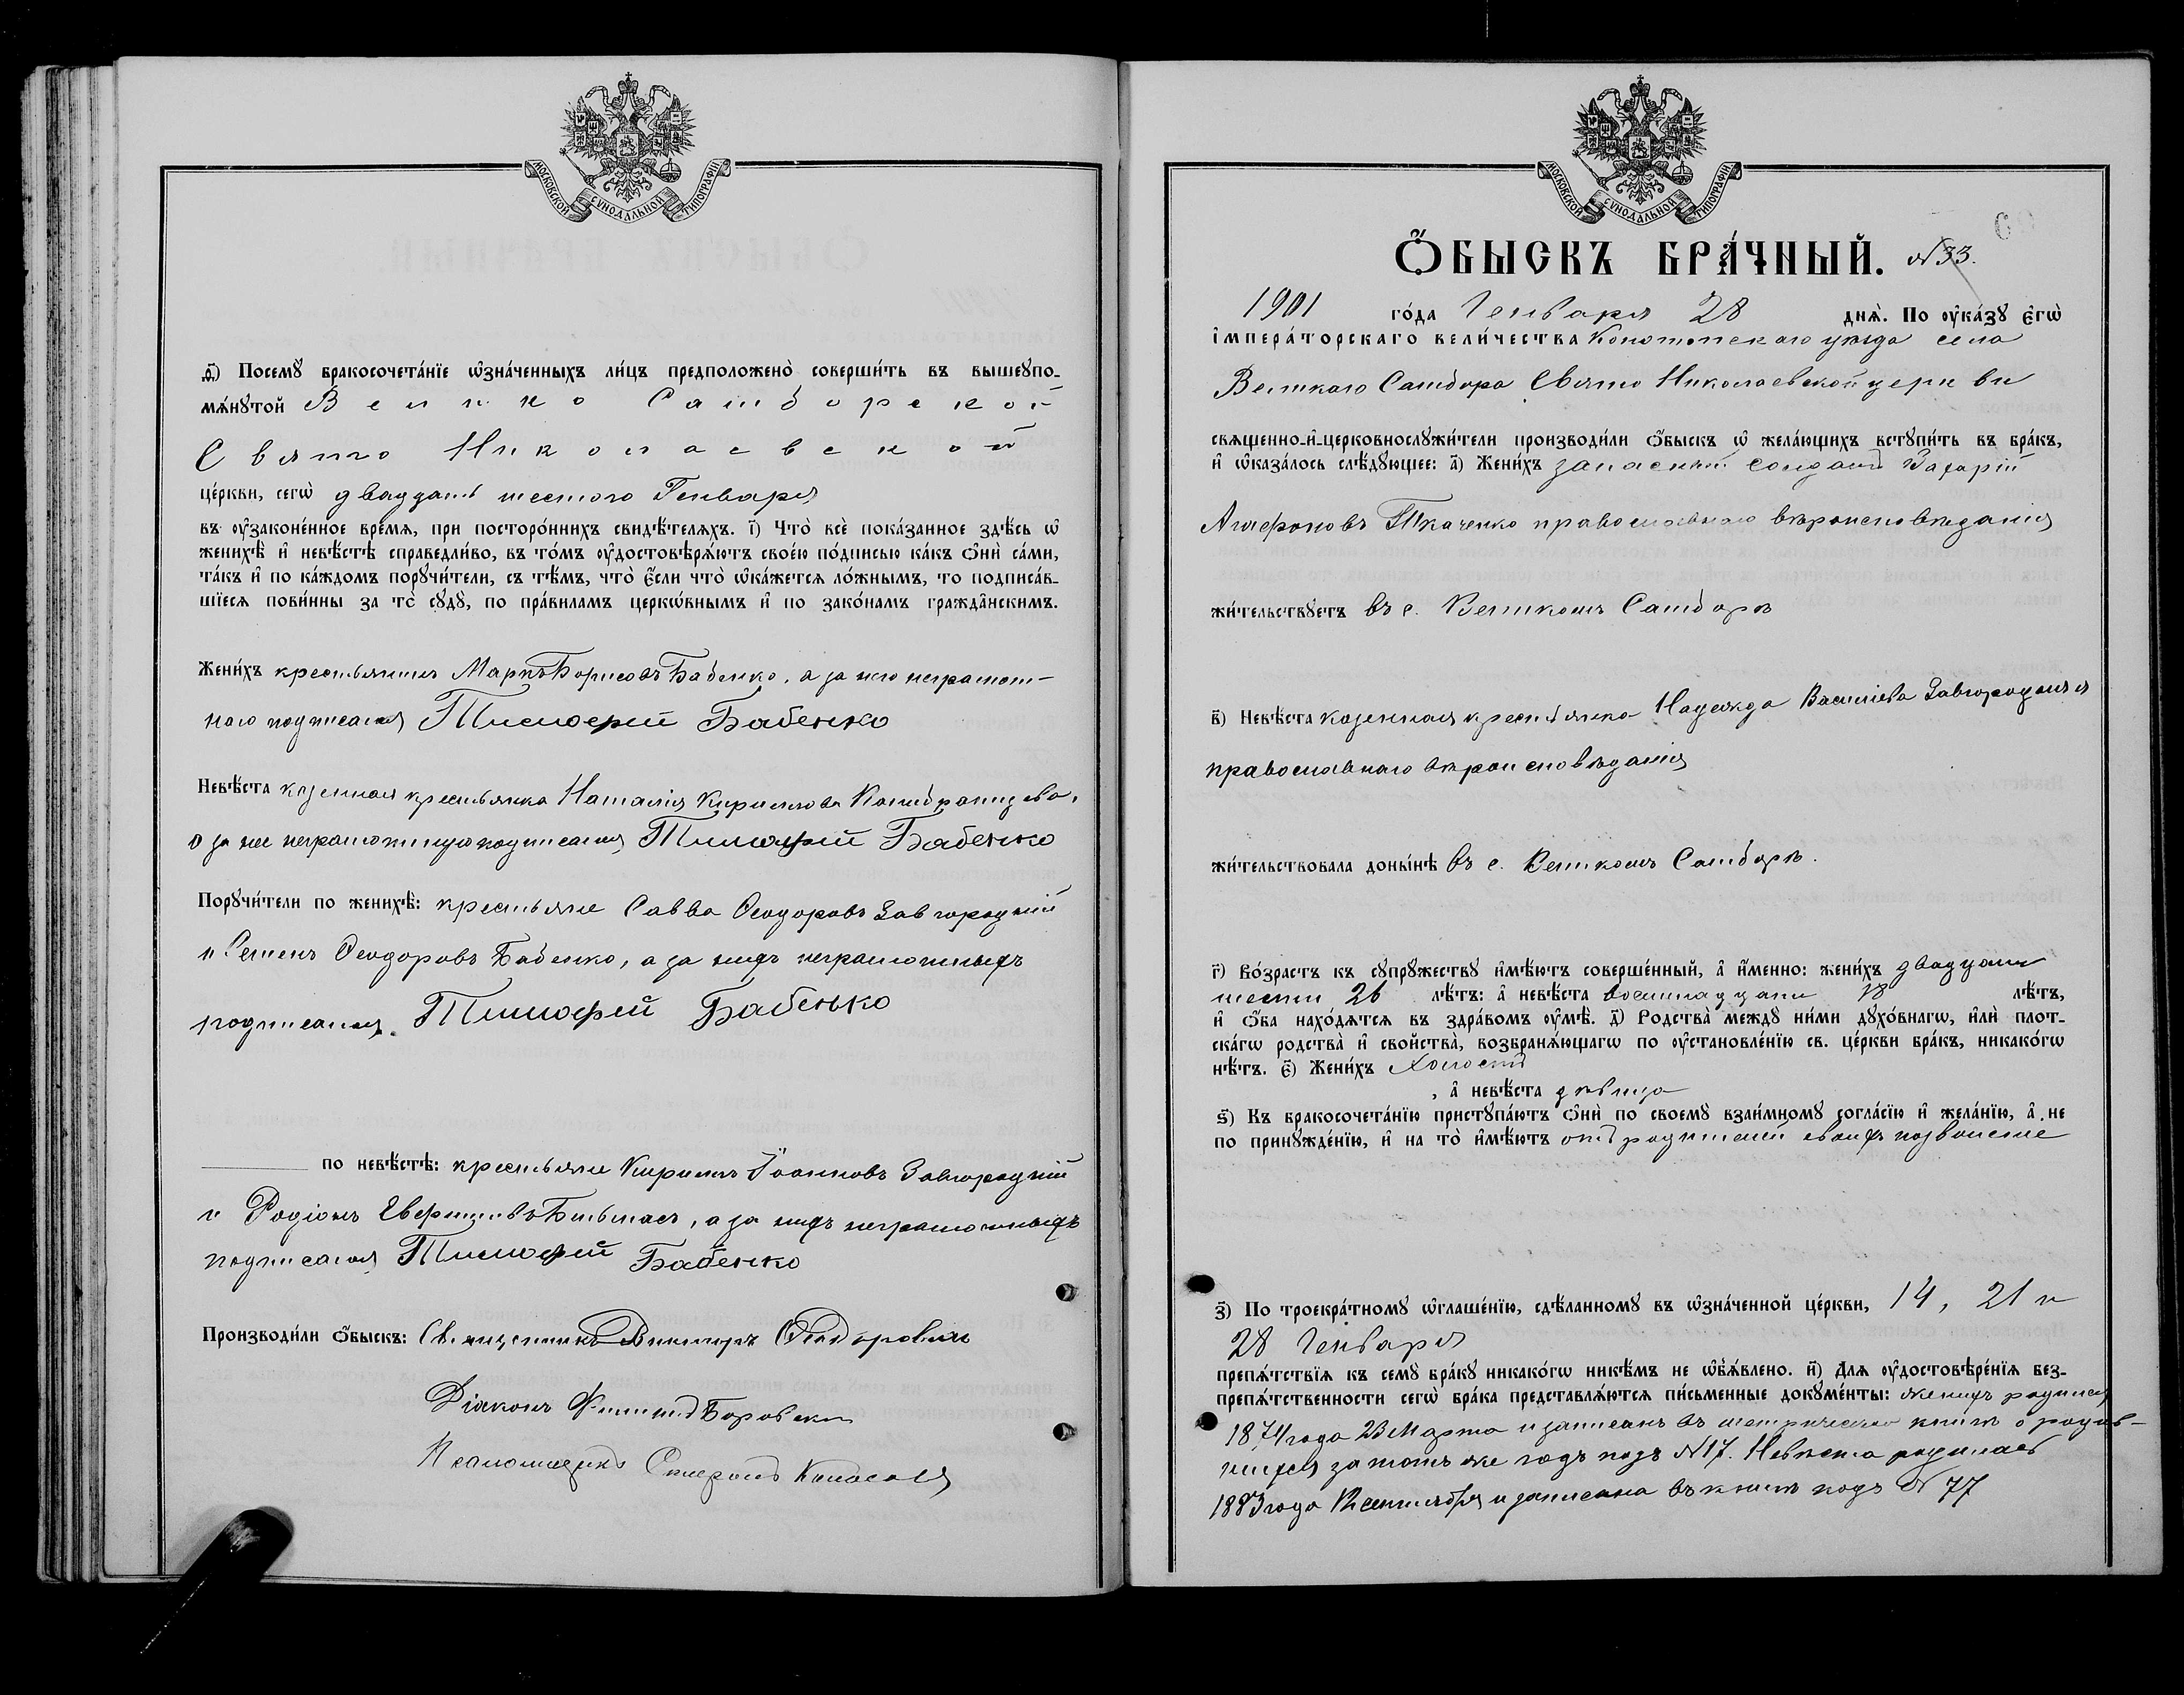 МОСКОВСКОЙ СУНОДАЛЬНОЙ ТИПОГРАФІИ
д҃і) Посемꙋ̀ бракосочета́нїе ѡ҆зна́ченныхъ ли́цъ предположено̀ соверши́ть въ вышеупо-
мѧ́нꙋтой Велико Самборской
Свято Николаевской
це́ркви, сегѡ̀ двадцать шестого Генваря
въ ᲂу҆законе́нное вре́мѧ, при посторо́ннихъ свидѣ́телѧхъ. і҃) Что̀ всѐ пока́занное здѣ́сь ѡ҆
женихѣ̀ и҆ невѣ́стѣ справедли́во, въ то́мъ ᲂу҆достовѣрѧ́ютъ свое́ю по́дписью ка́къ ѻ҆нѝ са́ми,
та́къ и҆ по ка́ждомъ порꙋчи́тели, съ тѣ́мъ, что̀ є҆́сли что̀ ѡ҆ка́жетсѧ ло́жнымъ, то подписа́в-
шїесѧ пови́нны за то̀ сꙋдꙋ̀, по пра́виламъ церкѡ́внымъ и҆ по зако́намъ гражда̂нскимъ.
Жени́хъ крестьянинъ Маркъ Борисовъ Бабенко, а за него неграмот-
наго подписался Тимофей Бабенко
Невѣ́ста казенная крестьянка Наталія Кириллова
а за нее неграмотную подписался Тимофей Бабенко
Порꙋчи́тели по женихѣ̀: крестьяне Савва Ѳеодоровъ Завгородній
и Семенъ Ѳеодоровъ Бабенко, а за нихъ неграмотныхъ
подписался Тимофей Бабенко
по невѣ́стѣ: крестьяне Кириллъ Іоанновъ Завгородній
и Родіонъ а за нихъ неграмотныхъ
подписался Тимофей Бабенко
Производи́ли ѻ҆́быскъ: Священникъ Викторъ
Діаконъ Филиппъ Боровскій
Псаломщикъ Стефанъ
МОСКОВСКОЙ СУНОДАЛЬНОЙ ТИПОГРАФІИ
Ѻ҆́БЫСКЪ БРА́ЧНЫЙ. №33.
1901 го́да Генваря 28 днѧ̀. По ᲂу҆ка́зꙋ є҆гѡ̀
і҆мпера́торскаго вели́чества Конотопскаго уѣзда села
Великаго Самбора Свято Николаевской церкви
свѧщенно-и҆-церковнослꙋжи́тели производи́ли ѻ҆́быскъ ѡ҆ жела́ющихъ встꙋпи́ть въ бра́къ,
и҆ ѡ҆каза́лось слѣ́дꙋющее: а҃) Жени́хъ запасный солдатъ Захарій
Агафоновъ Ткаченко православнаго вѣроисповѣданія
жи́тельствꙋетъ въ с. Великомъ Самборѣ
в҃) Невѣ́ста казенная крестьянка Надежда Василіева Завгородняя
православнаго вѣроисповѣданія
жи́тельствовала доны́нѣ въ с. Великомъ Самборѣ.
г҃) Во́зрастъ къ сꙋпрꙋ́жествꙋ и҆мѣ́ютъ соверше́нный, а҆ и҆́менно: жени́хъ двадцати
шести 26 лѣ́тъ: а҆ невѣ́ста восемнадцати 18 лѣ́тъ,
и҆ ѻ҆́ба нахо́дѧтсѧ въ здра́вомъ ᲂу҆мѣ̀. д҃) Родства̀ междꙋ ни́ми дꙋхо́внагѡ, и҆лѝ плот-
ска́гѡ родства̀ и҆ сво́йства̀, возбранѧ́ющагѡ по ᲂу҆становле́нїю св. це́ркви бра́къ, никако́гѡ
нѣ́тъ. є҃) Жени́хъ холостъ
, а҆ невѣ́ста дѣвица
ѕ҃) Къ бракосочета́нїю пристꙋпа́ютъ ѻ҆нѝ по своемꙋ̀ взаи́мномꙋ согла́сїю и҆ жела́нїю, а҆ не
по принꙋжде́нїю, и҆ на то̀ и҆мѣ́ютъ отъ родителей своихъ позволеніе
з҃) По троекра́тномꙋ ѡ҆глаше́нїю, сдѣ́ланномꙋ въ ѡ҆зна́ченной це́ркви, 14, 21 и
28 Генваря
препѧ́тствїѧ къ семꙋ̀ бра́кꙋ никако́гѡ никѣ́мъ не ѡ҆бъѧ́влено. и҃) Длѧ ᲂу҆достовѣре́нїѧ без-
препѧ́тственности сегѡ̀ бра́ка представлѧ́ютсѧ пи́сьменные докꙋме́нты: женихъ родился
1874 года 23 Марта и записанъ въ метрической книгѣ о родив-
шихся за тотъ же годъ подъ №17. Невѣста родилась
1883 года 12 сентября и записана въ книгѣ подъ № 77